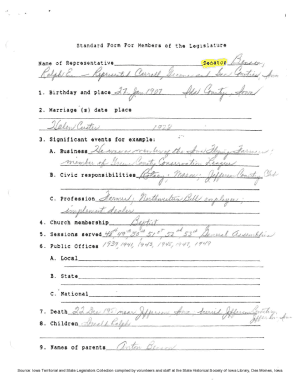 Standard Form For Members of the Legislature
Name of Representative Senator
Ralph E. - Represented Carroll, Greene and
1. Birthday and place 27 Jan 1907 Ida County, Iowa
2. Marriage (s) date place
Helen 1928
3. Significant events for example:
A. Business He was a member of the
member of County Conservation League
B. Civic responsibilities Rotary; Mason; Jefferson Country Club
C. Profession Farmer; Northwestern Bell employee;
implement dealer
4. Church membership Baptist
5. Sessions served 48th 49th 50th 51st 52nd 53rd General Assemblies
6. Public Offices 1939, 1941, 1943, 1945, 1947, 1949
A. Local
B. State
C. National
7. Death near Jefferson, Iowa buried Jefferson
8. Children Ralph
9. Names of parents
Source: Iowa Territorial and State Legislators Collection compiled by volunteers and staff at the State Historical Society of Iowa Library, Des Moines, Iowa.